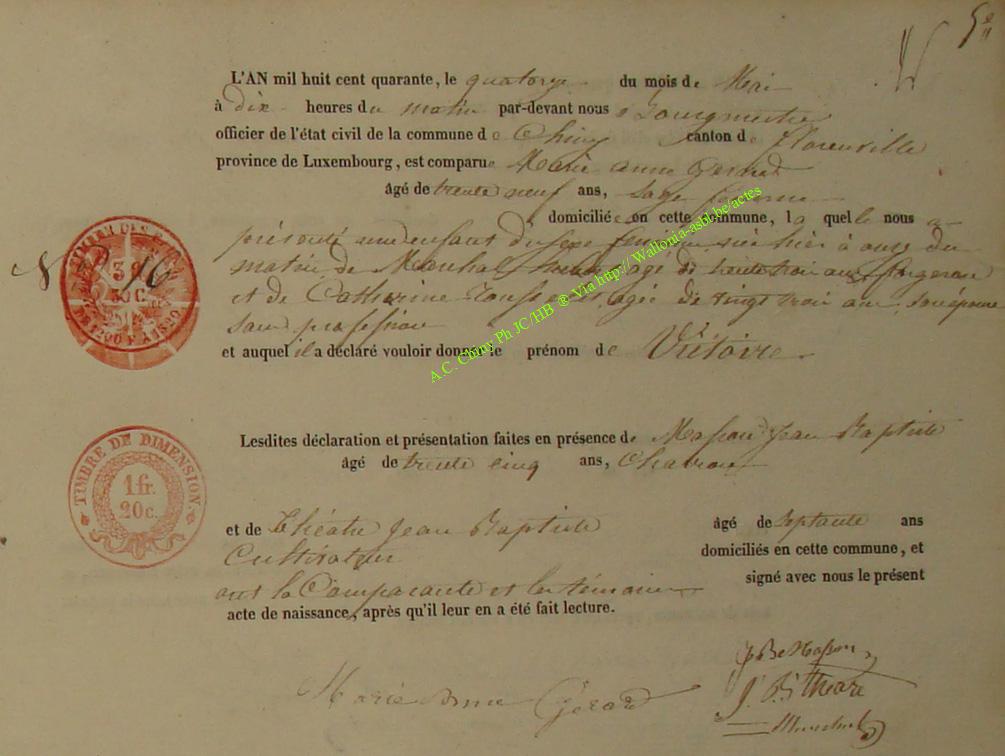 L'AN mil huit cent quarante, le quatorze du mois de Mai
à dix heures du matin par-devant nous Bourgmestre
officier de l'état civil de la commune de Chiny canton de florenville
province de Luxembourg, est comparue Marie anne Gerard
âgé de trente neuf ans, sage femme
, domiciliée en cette commune, la quelle nous a
présenté une enfant du sexe née hier à onze du
matin de agé de trente trois ans forgeron
et de Catherine agée de vingt trois ans son épouse
sans profession
et auquel il a déclaré vouloir donner le prénom de Victoire
Lesdites déclaration et présentation faites en présence de Masson Jean Baptiste
âgé de trente cinq ans,
et de Théatre Jean Baptiste âgé de septante ans
Cultivateur domiciliés en cette commune, et
ont la Comparante et les témoins signé avec nous le présent
acte de naissance, après qu'il leur en a été fait lecture.
Marie Anne Gérard
TIMBRE DE DIMENSION.
1 fr.
20 c.
A.C. Chiny Ph JC/HB ® Via http://Wallonia-asbl.be/actes